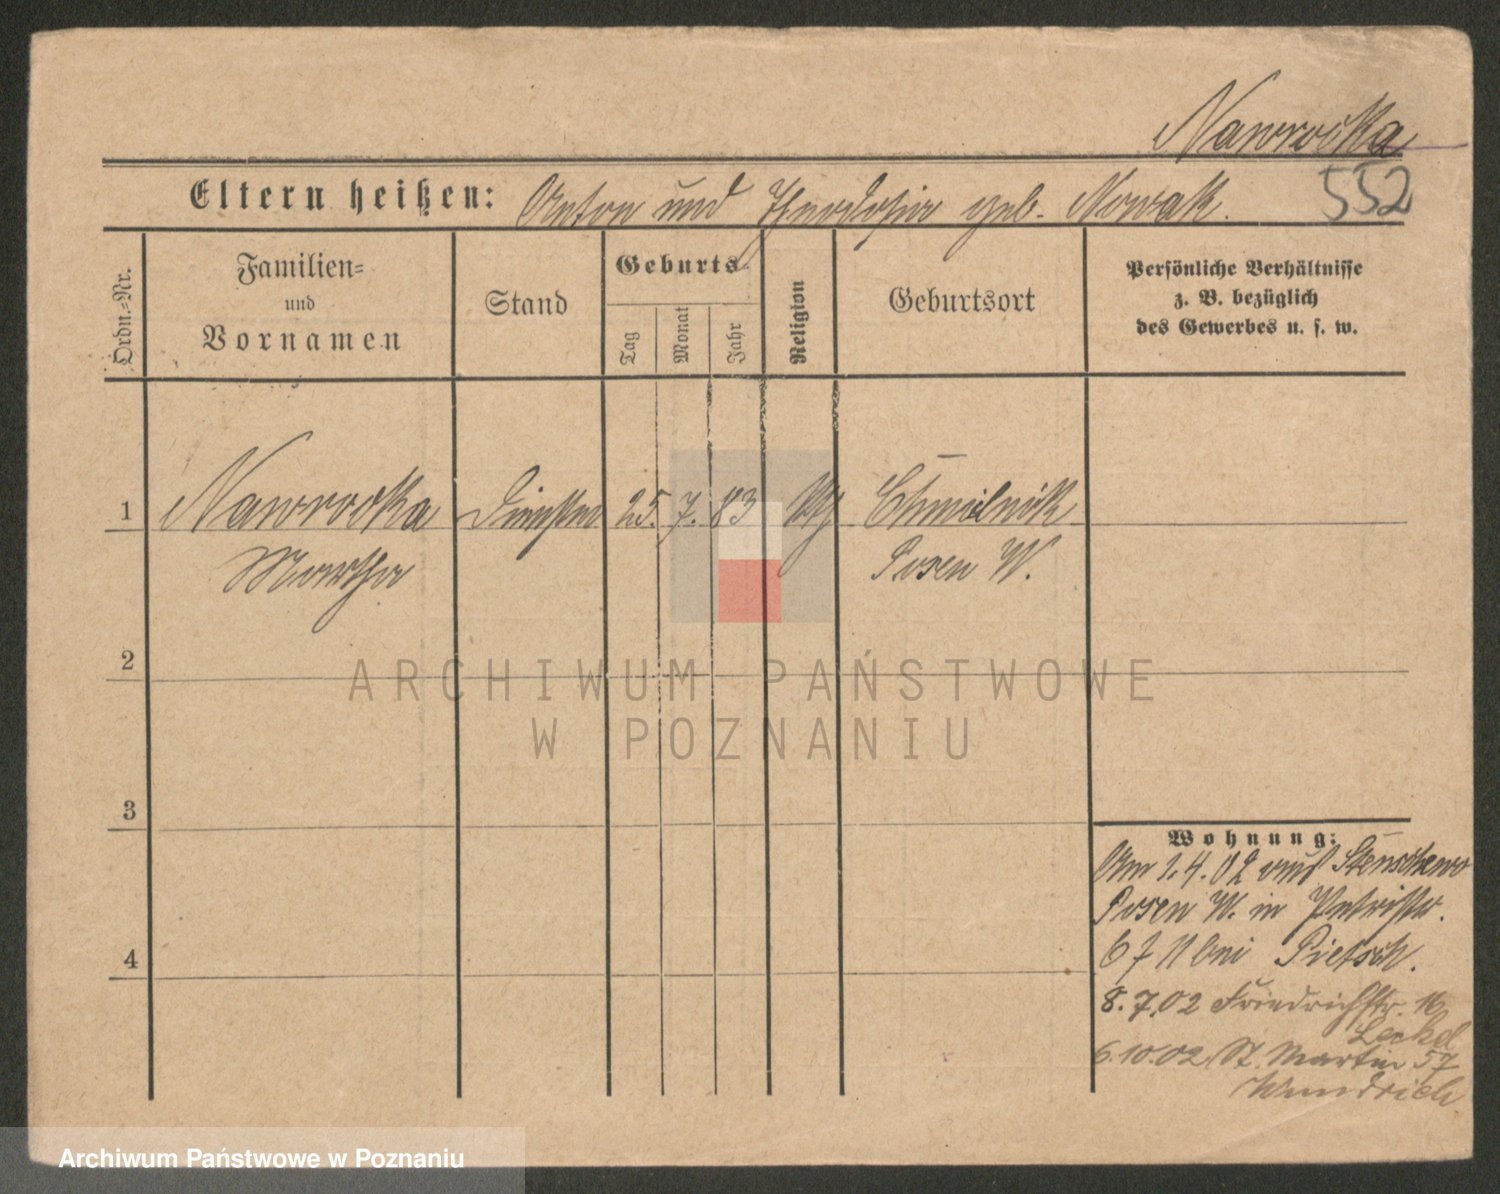 Nawrocka
552
Eltern heißen: Anton und Theodosia geb. Nowak.
Ordn.-Nr.
Familien-
und
Vornamen
Stand
Geburts-
Tag
Monat
Jahr
Religion
Geburtsort
Persönliche Verhältnisse
z. B. bezüglich
des Gewerbes u. s. w.
1 Nawrocka 25. 7. 83 Chmielnik
Martha Posen W.
2
ARCHIWUM PAŃSTWOWE
W POZNANIU
3
4
Wohnung:
Am 1.4.02 aus Stenschewo
Posen W. in Petristr.
6 II bei Pietsch.
8.7.02 Friedrichstr. 16
Leckel
6.10.02 St. Martin 57
Wundrich
Archiwum Państwowe w Poznaniu